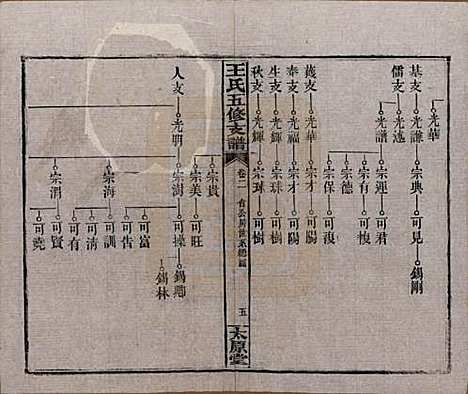 光華
基支 光謙 宗典 可見 錫剛
儒支 光遠
光譜 宗運 可君
宗有 可復
宗德
宗保 可復
蕆支 光華 宗才 可陽
奉支 光福 宗才 可陽
生支 光輝 宗球 可樹
秋支 光輝 宗球 可樹
王氏五修支譜
卷二
五
太原堂
宗貴
宗美 可旺
人支 光明 宗澍 可操 錫卿
錫林
可富
宗海 可告
可訓
可清
宗潤 可有
可賓
可堯